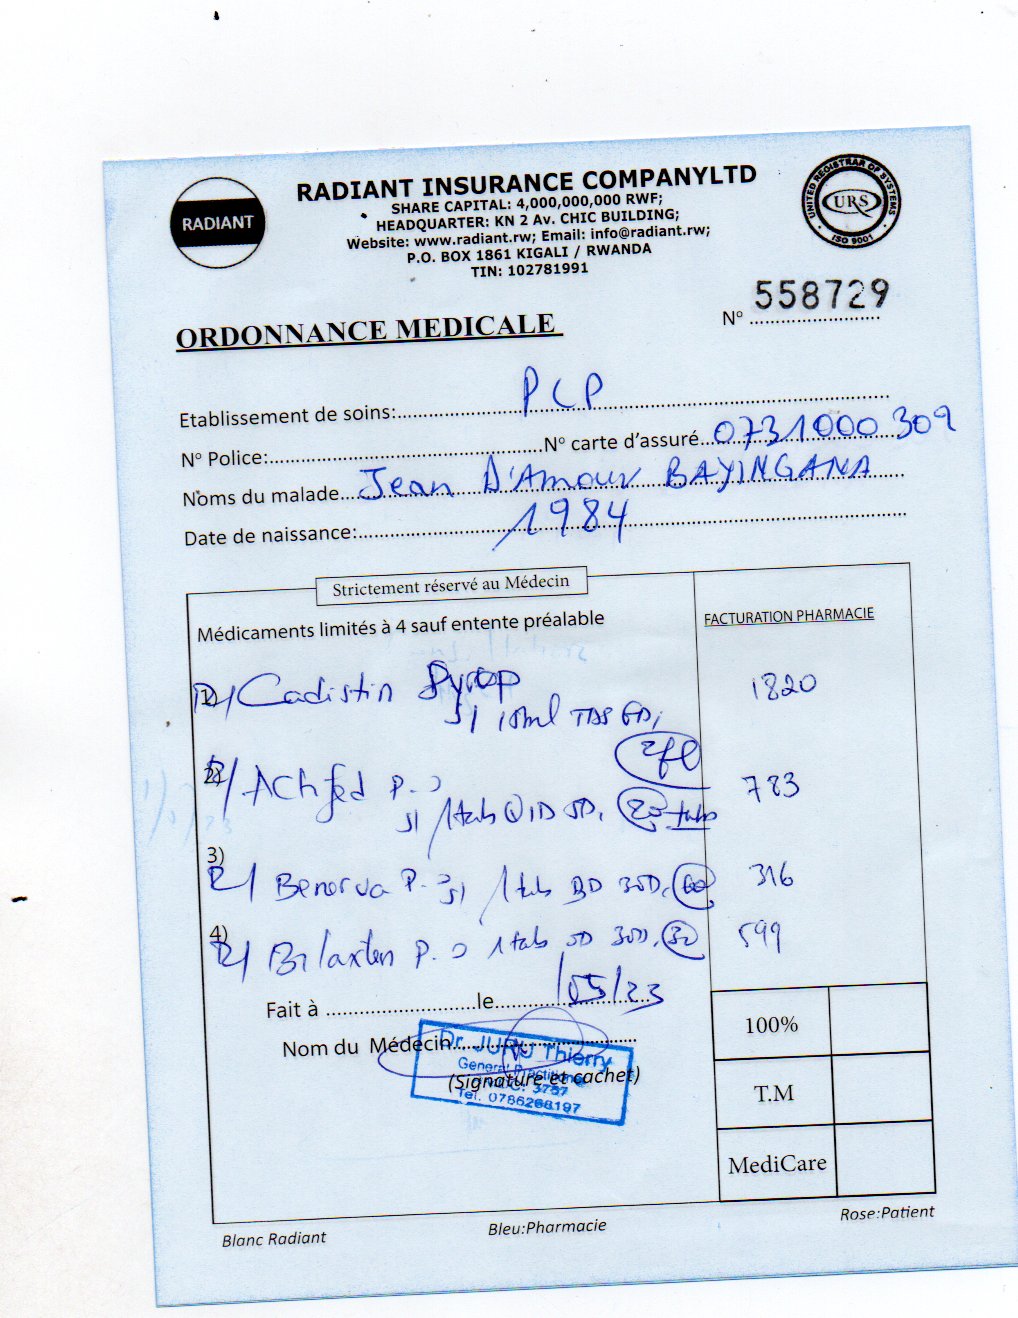 RADIANT
RADIANT INSURANCE COMPANYLTD
SHARE CAPITAL: 4,000,000,000 RWF;
HEADQUARTER: KN 2 Av. CHIC BUILDING;
Website: www.radiant.rw; Email: info@radiant.rw;
P.O. BOX 1861 KIGALI / RWANDA
TIN: 102781991
UNITED REGISTRAR OF SYSTEMS
URS
ISO 9001
ORDONNANCE MEDICALE
Nº 558729
Etablissement de soins: PCP
Nº Police: Nº carte d'assuré 0731000309
Noms du malade Jean D'Amour BAYINGANA
Date de naissance: 1984
Strictement réservé au Médecin
Médicaments limités à 4 sauf entente préalable
FACTURATION PHARMACIE
1) R/ Cadistin Syrop 1820
S/ 10ml TDS
2) R/ Achfed P.O 783
S/ 1tab 5D. 20 tabs
3) R/ Benorva P.O S/ 1tab BD 30D. 60 316
4) R/ Bilaxten P.O 1tab 30D. 30 599
Fait à le /05/23
Nom du Médecin
Dr. JURU Thierry
General Practitioner
(Signature et cachet)
Tel. 0786268197
100%
T.M
MediCare
Blanc Radiant
Bleu:Pharmacie
Rose:Patient